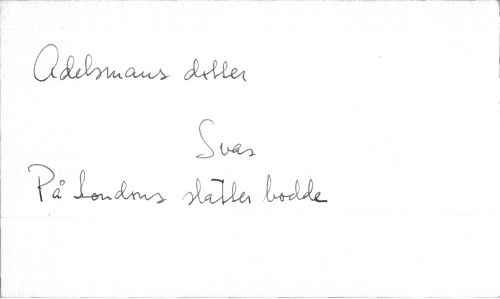 Adelsmans dotter
Svar
På Londons slätter bodde